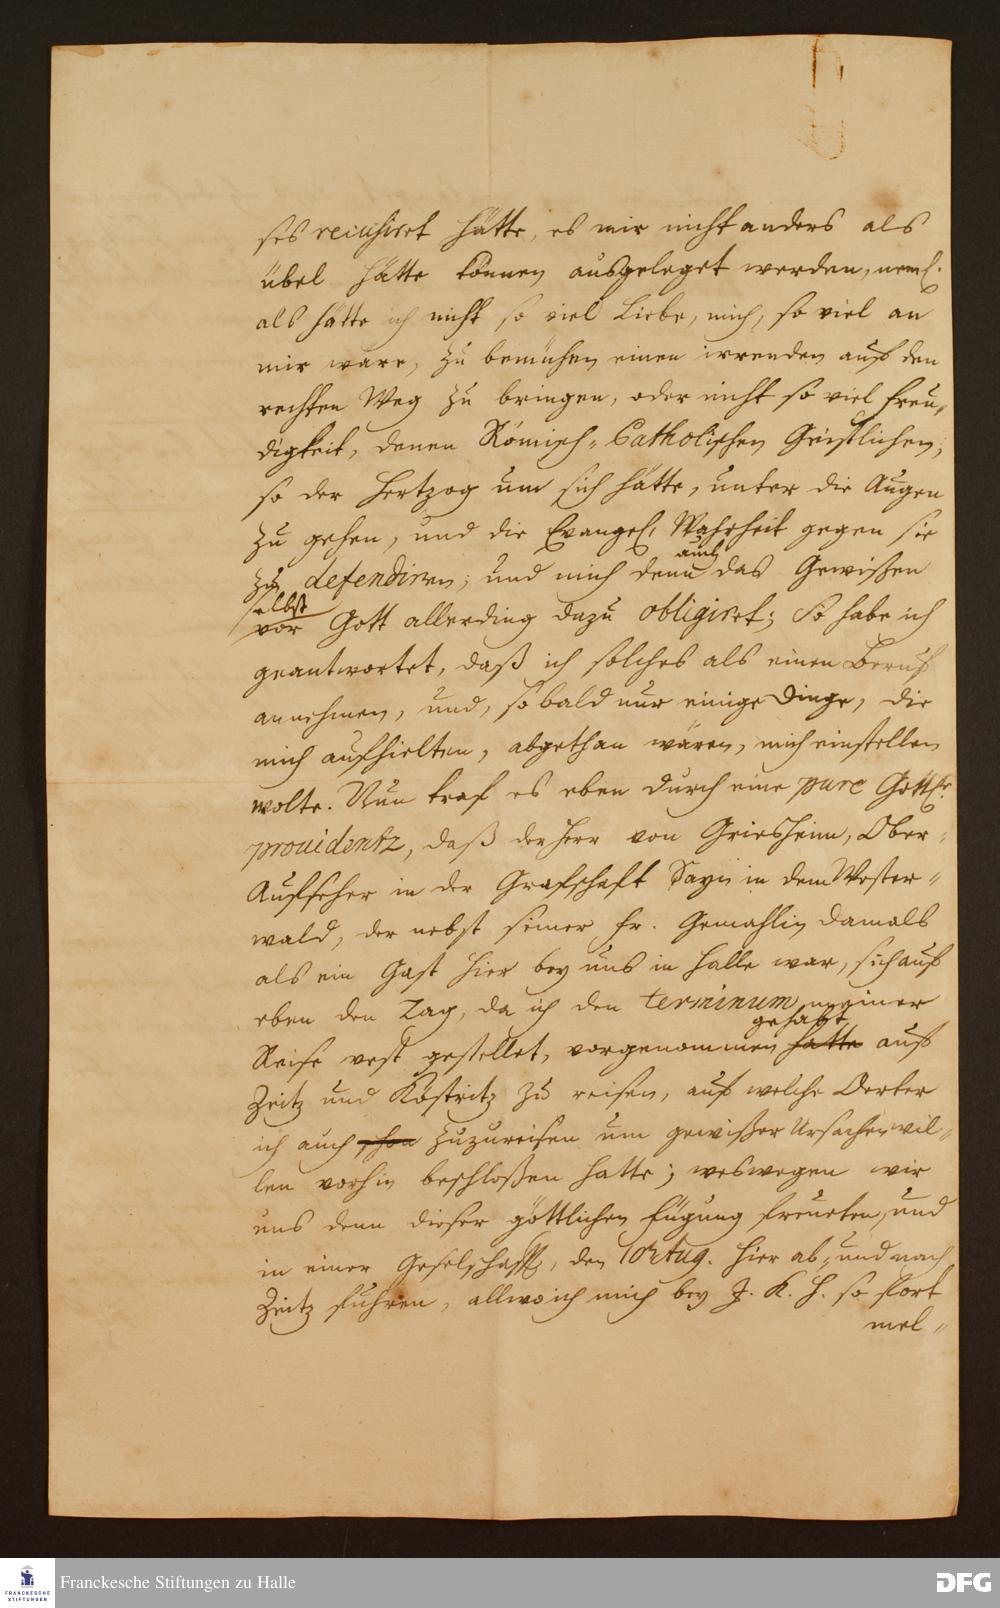 ses recusiret hätte, es mir nicht anders als
übel hätte können ausgeleget werden, neml.
als hätte ich nicht so viel Liebe, mich, so viel an
mir wäre, zu bemühen einen irrenden auf den
rechten Weg zu bringen, oder nicht so viel Freu„
digkeit, denen Römisch-Catholischen Geistlichen,
so der Hertzog um sich hätte, unter die Augen
zu gehen, und die Evangel. Wahrheit gegen sie
auch
zu defendiren; und mich denn das Gewißen
selbst
vor Gott allerding dazu obligiret; So habe ich
geantwortet, daß ich solches als einen Beruf
annehmen, und, so bald nur einige Dinge, die
mich aufhielten, abgethan wären, mich einstellen
wolte. Nun traf es eben durch eine pure Göttl.
providentz, daß der Herr von Griesheim, Ober-
Aufseher in der Grafschaft Sayn in dem Wester„
wald, der nebst seiner Fr. Gemahlin damals
als ein Gast hier bey uns in Halle war, sich auf
eben den Tag, da ich den terminum meiner
gehabt
Reise vest gestellet, vorgenommen hatte auf
Zeitz und Köstritz zu reisen, auf welche Oerter
ich auch schon zuzureisen um gewißer Ursachen wil„
len vorhin beschloßen hatte; weswegen wir
uns denn dieser göttlichen Fügung freueten, und
in einer Geselschafft, den 10t Aug. hier ab- und nach
Zeitz fuhren, allwo ich mich bey J. K. H. so fort
mel„
Franckesche Stiftungen zu Halle
FRANCKESCHE
STIFTUNGEN
DFG